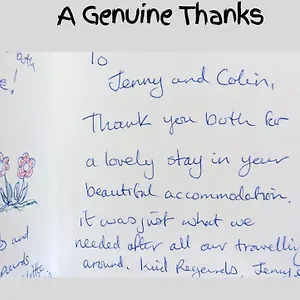 A Genuine Thanks
To
Jenny and Colin,
Thank you both for
a lovely stay in your
beautiful accommodation.
it was just what we
needed after all our travelling
around. Kind Regards,
both
e!
and